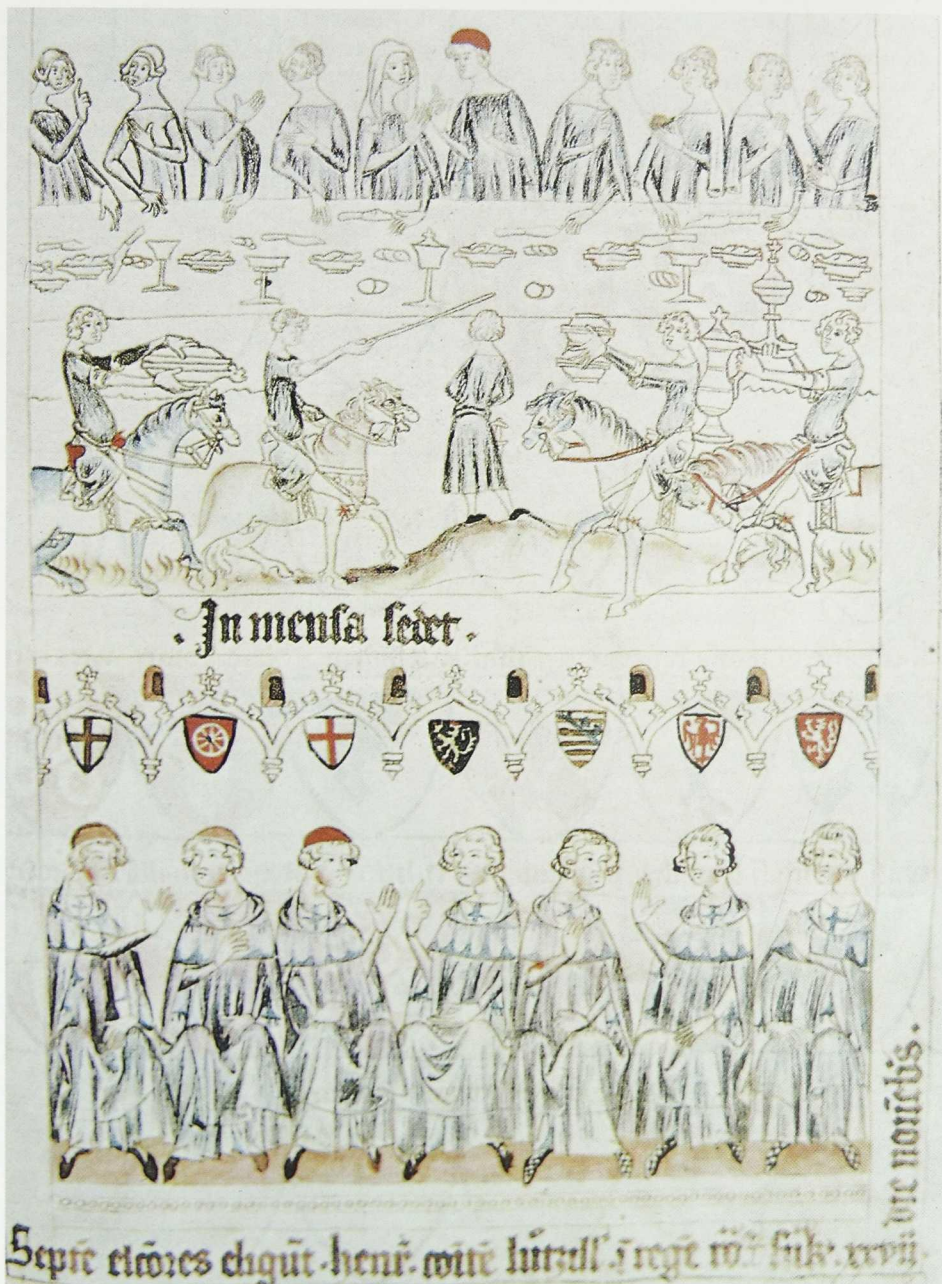 . In mensa sedet .
Septē elc̄ores eligūt . henr̄ . comitē luczill' ī regē ro͞ . frāk . xxvii .
die nouēb's .